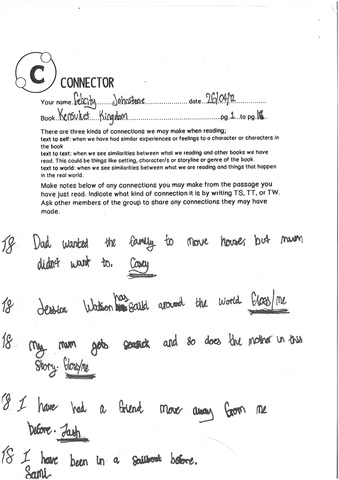 C CONNECTOR
Your name Felicity Johnstone date 26/04/12
Book Kensuket Kingdom pg 1 to pg
There are three kinds of connections we may make when reading;
text to self: when we have had similar experiences or feelings to a character or characters in
the book
text to text: when we see similarities between what we reading and other books we have
read. This could be things like setting, character/s or storyline or genre of the book.
text to world: when we see similarities between what we are reading and things that happen
in the real world.
Make notes below of any connections you may make from the passage you
have just read. Indicate what kind of connection it is by writing TS, TT, or TW.
Ask other members of the group to share any connections they may have
made.
TS Dad wanted the family to move houses but mum
didn't want to. Casey
TS Jessica Watson has saild around the world /me
TS My mum gets seasick and so does the mother in this
story. /me
TS I have had a friend move away from me
before.
TS I have been in a sailboat before.
Sami